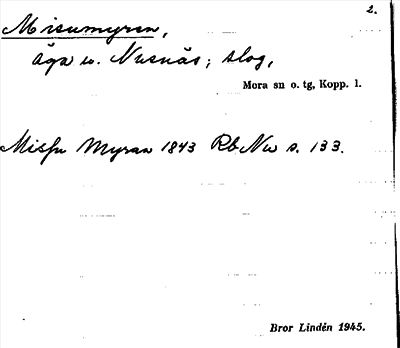 2.
Misumyren,
äga u. Nusnäs; slog,
Mora sn o. tg, Kopp. l.
Misfu Myran 1843 Rb Nw s. 133.
Bror Lindén 1945.